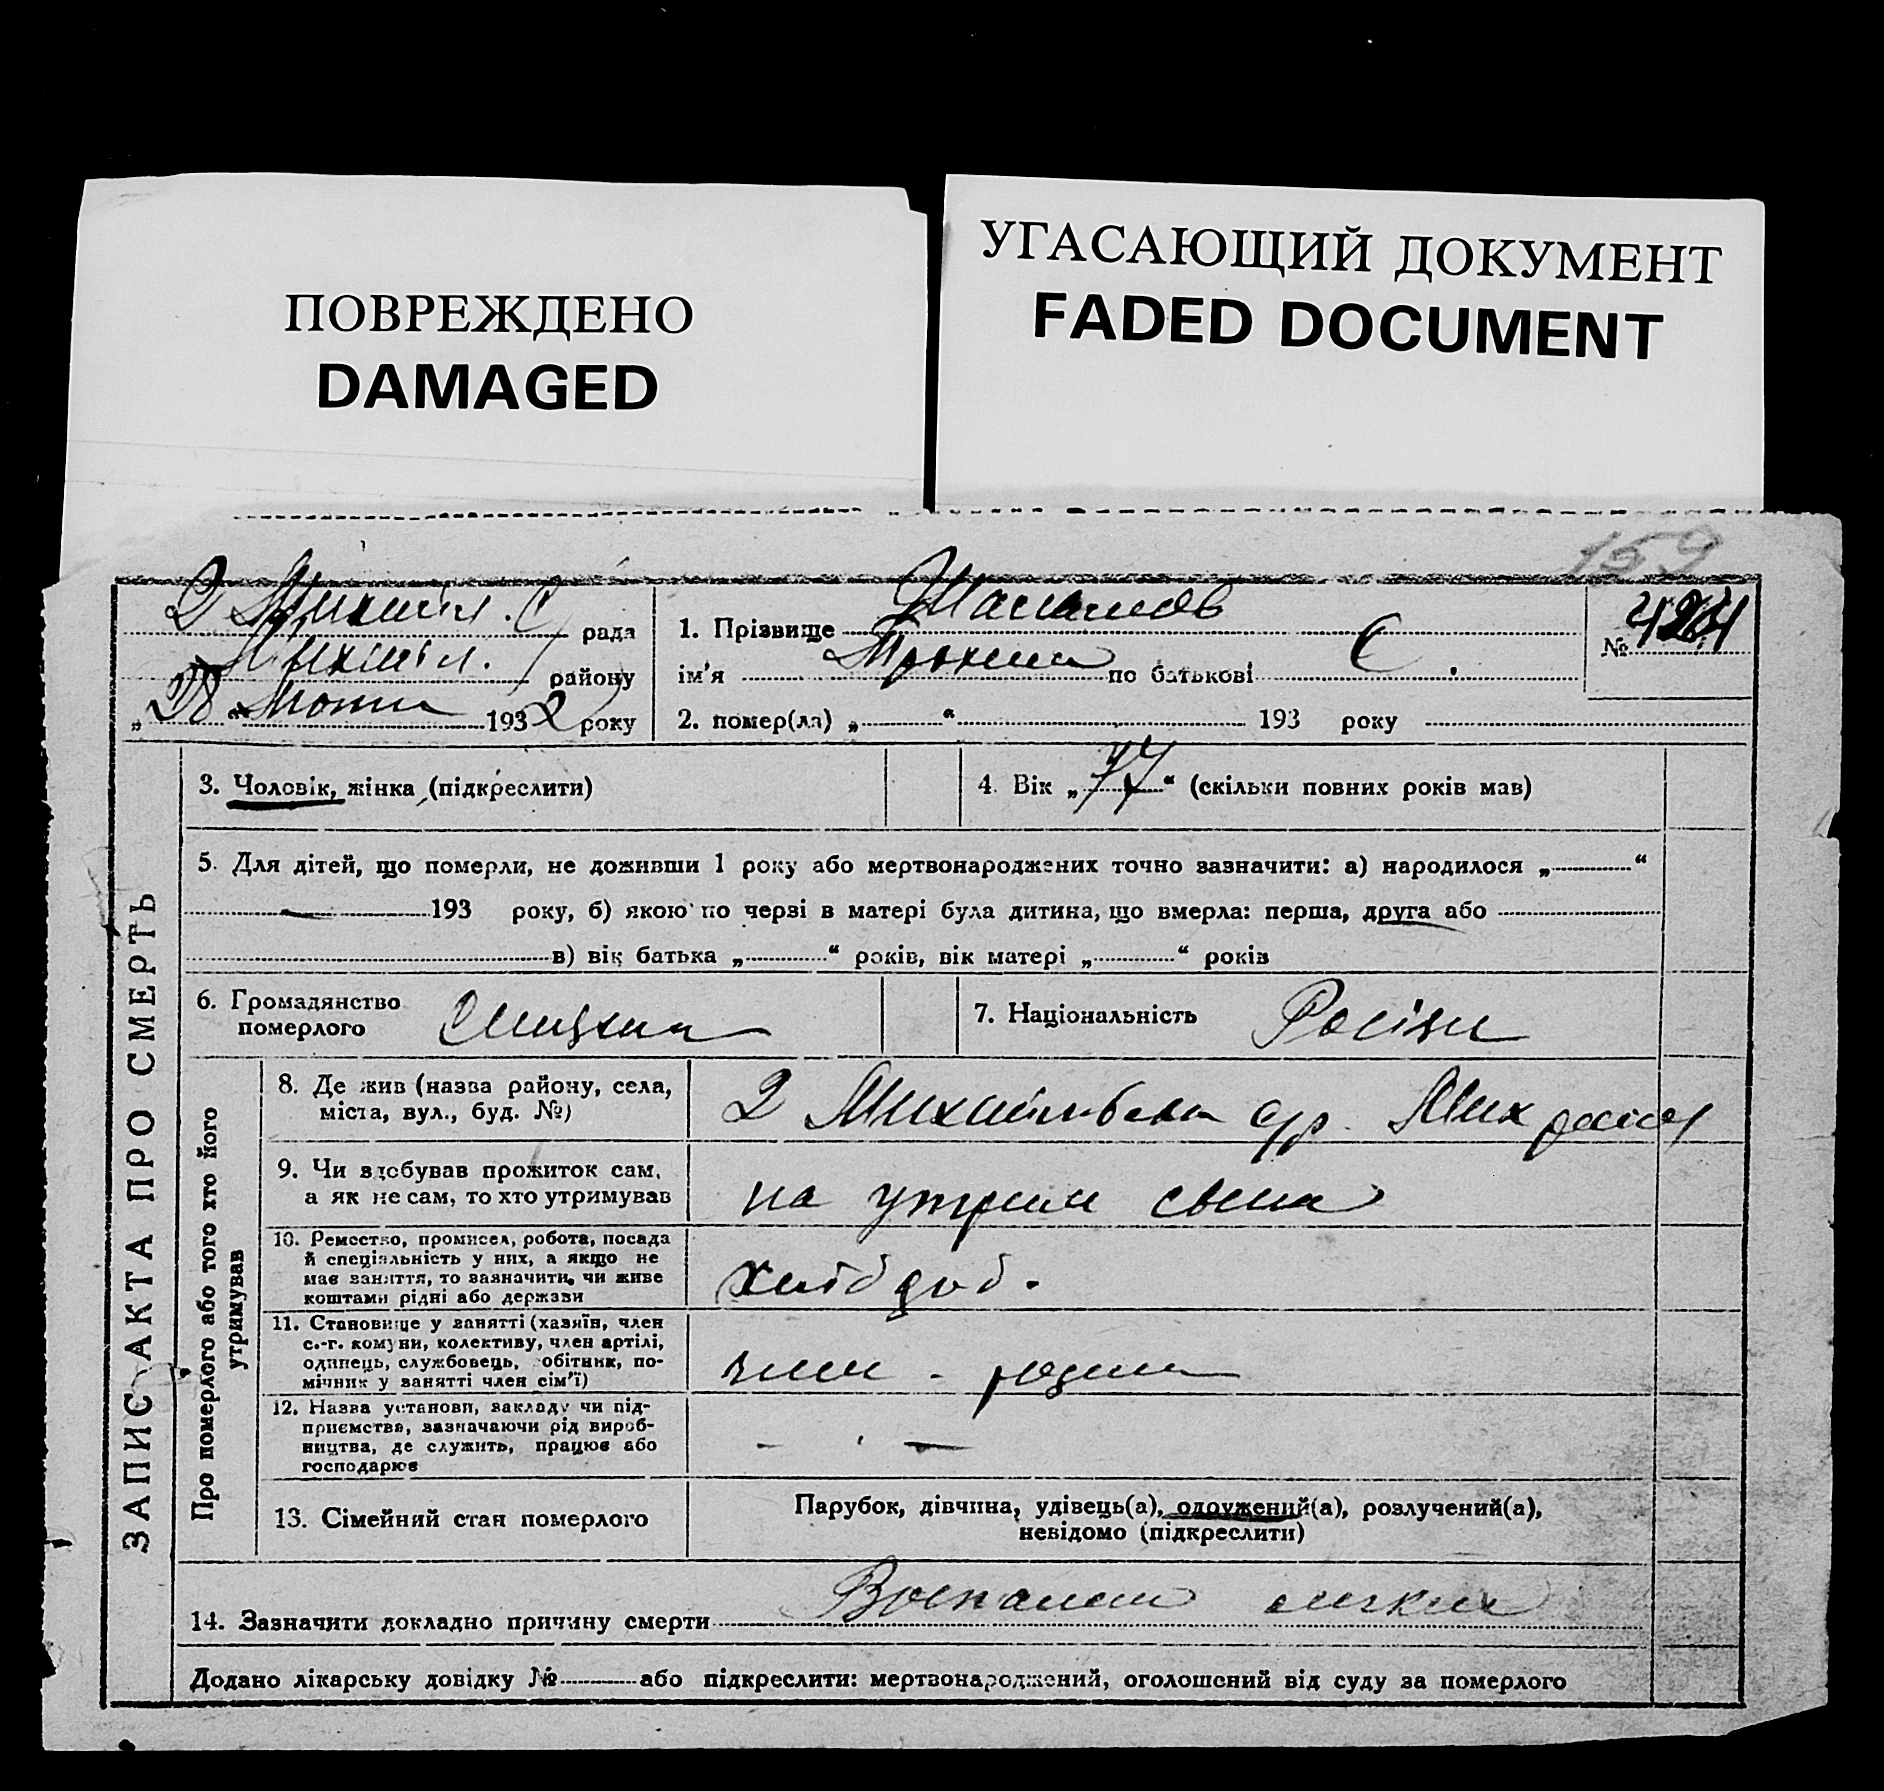 ПОВРЕЖДЕНО
DAMAGED
УГАСАЮЩИЙ ДОКУМЕНТ
FADED DOCUMENT
159
2 Михайл. С/рада
Михайл. району
„28“ 1932 року
1. Прізвище
ім'я Трохим по батькові С.
№
2. помер(ла) „ “ 193 року
ЗАПИС АКТА ПРО СМЕРТЬ
3. Чоловік, жінка (підкреслити)
4. Вік „77“ (скільки повних років мав)
5. Для дітей, що померли, не доживши 1 року або мертвонароджених точно зазначити: а) народилося „ “
193 року, б) якою по черзі в матері була дитина, що вмерла: перша, друга або
в) вік батька „ “ років, вік матері „ “ років
6. Громадянство
померлого
7. Національність Росіян
Про померлого або того хто його
утримував
8. Де жив (назва району, села,
міста, вул., буд. №)
2 Михайлівська с/р. Мих район
9. Чи здобував прожиток сам,
а як не сам, то хто утримував
на утрим сына
10. Ремество, промисел, робота, посада
й спеціяльність у них, а якщо не
має заняття, то зазначити, чи живе
коштами рідні або держави
хліб роб.
11. Становище у занятті (хазяїн, член
с.-г. комуни, колективу, член артілі,
одинець, службовець, робітник, по-
мічник у занятті член сім'ї)
член родини
12. Назва установи, закладу чи під-
приємства, зазначаючи рід вироб-
ництва, де служить, працює або
господарює
13. Сімейний стан померлого
Парубок, дівчина, удівець(а), одружений(а), розлучений(а),
невідомо (підкреслити)
14. Зазначити докладно причину смерти Воспален легких
Додано лікарську довідку № або підкреслити: мертвонароджений, оголошений від суду за померлого